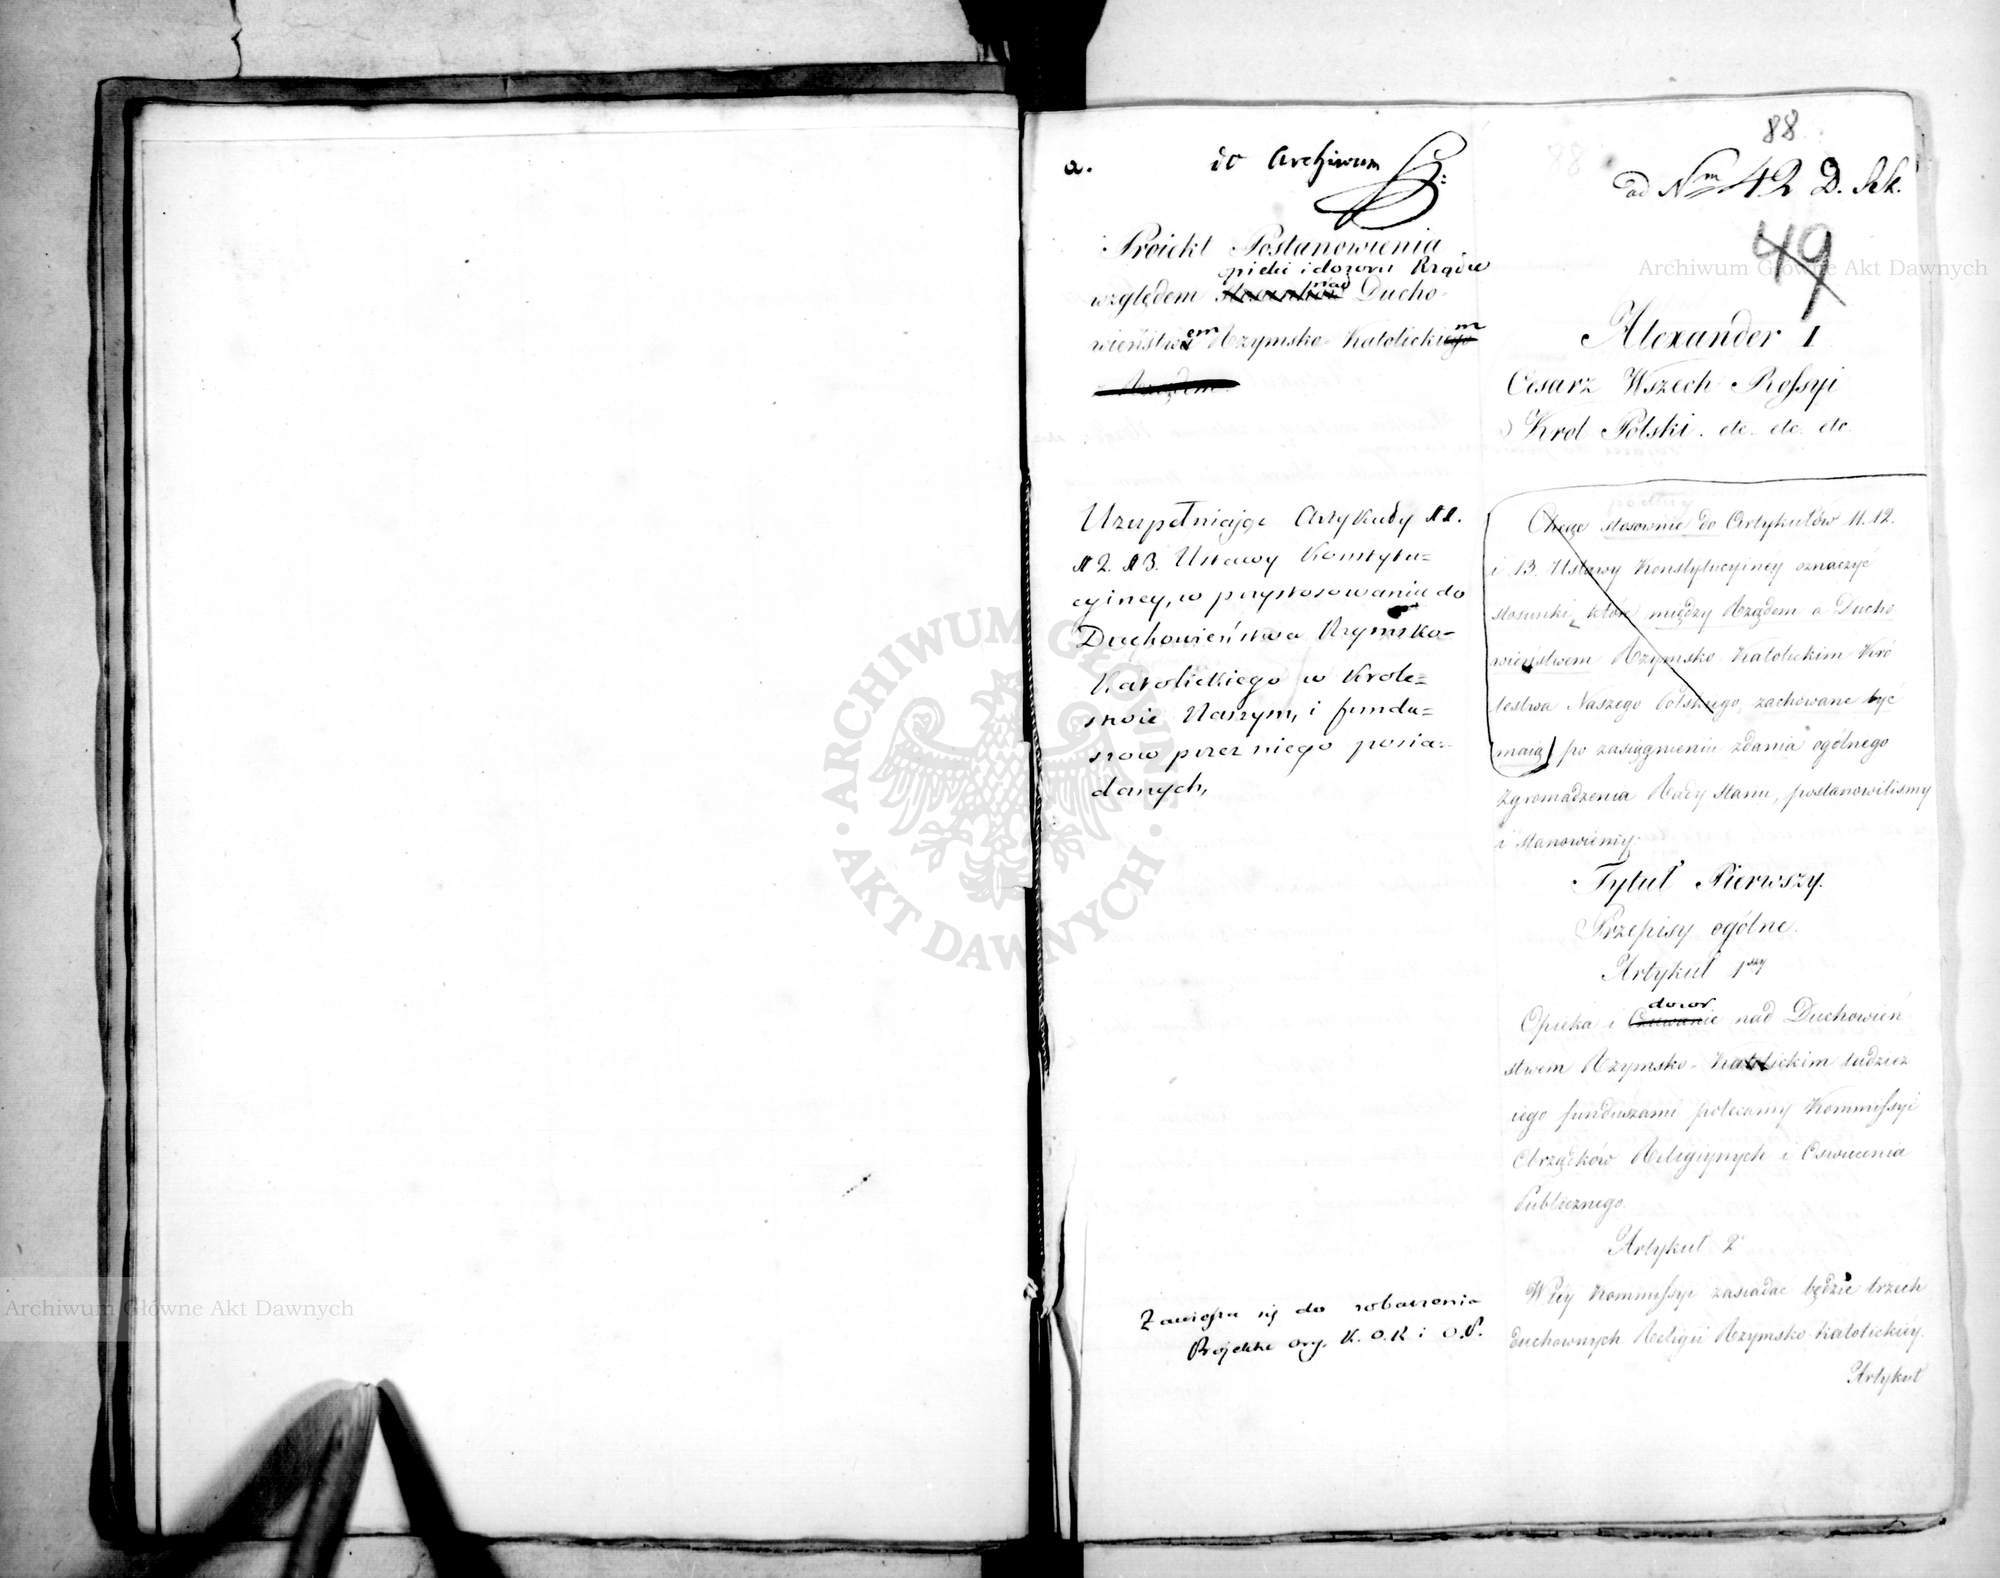 88
a.
do Archiwum
ad Nm 42 D. Sek.
49
Proiekt Postanowienia
opieki i dozoru Rządu
względem stosunków nad Ducho-
wieństwa em Rzymsko-Katolickiego m
z Rządem
Alexander I
Cesarz Wszech Rossyi
Krol Polski. etc. etc. etc.
Uzupełniając Artykuły 11.
12. 13. Ustawy Konstytu=
cyiney, w przystosowaniu do
Duchowieństwa Rzymsko-
Katolickiego w Krole=
stwie Naszym, i fundu=
szow przez niego posia=
danych,
Chcąc stosownie do Artykułów 11. 12.
i 13. Ustawy Konstytucyiney oznaczyć
stosunki, które między Rządem a Ducho
wieństwem Rzymsko Katolickim Kró
lestwa Naszego Polskiego, zachowane być
maią po zasiągnieniu zdania ogólnego
Zgromadzenia Rady Stanu, postanowiliśmy
i stanowiemy.
Tytuł Pierwszy.
Przepisy ogólne.
Artykuł 1szy
dozor
Opieka i Czuwanie nad Duchowień
stwem Rzymsko-Katolickim tudzież
iego funduszami polecamy Kommissyi
Obrządków Religiynych i Oświecenia
Publicznego.
Artykuł 2
W tey Kommissyi zasiadać będzie trzech
Duchownych Religii Rzymsko-Katolickiey.
Artykuł
Zawiesza się do zobaczenia
Projektu org. K. O. R i O. P.
Archiwum Główne Akt Dawnych
Archiwum Główne Akt Dawnych
ARCHIWUM GŁÓWNE
AKT DAWNYCH